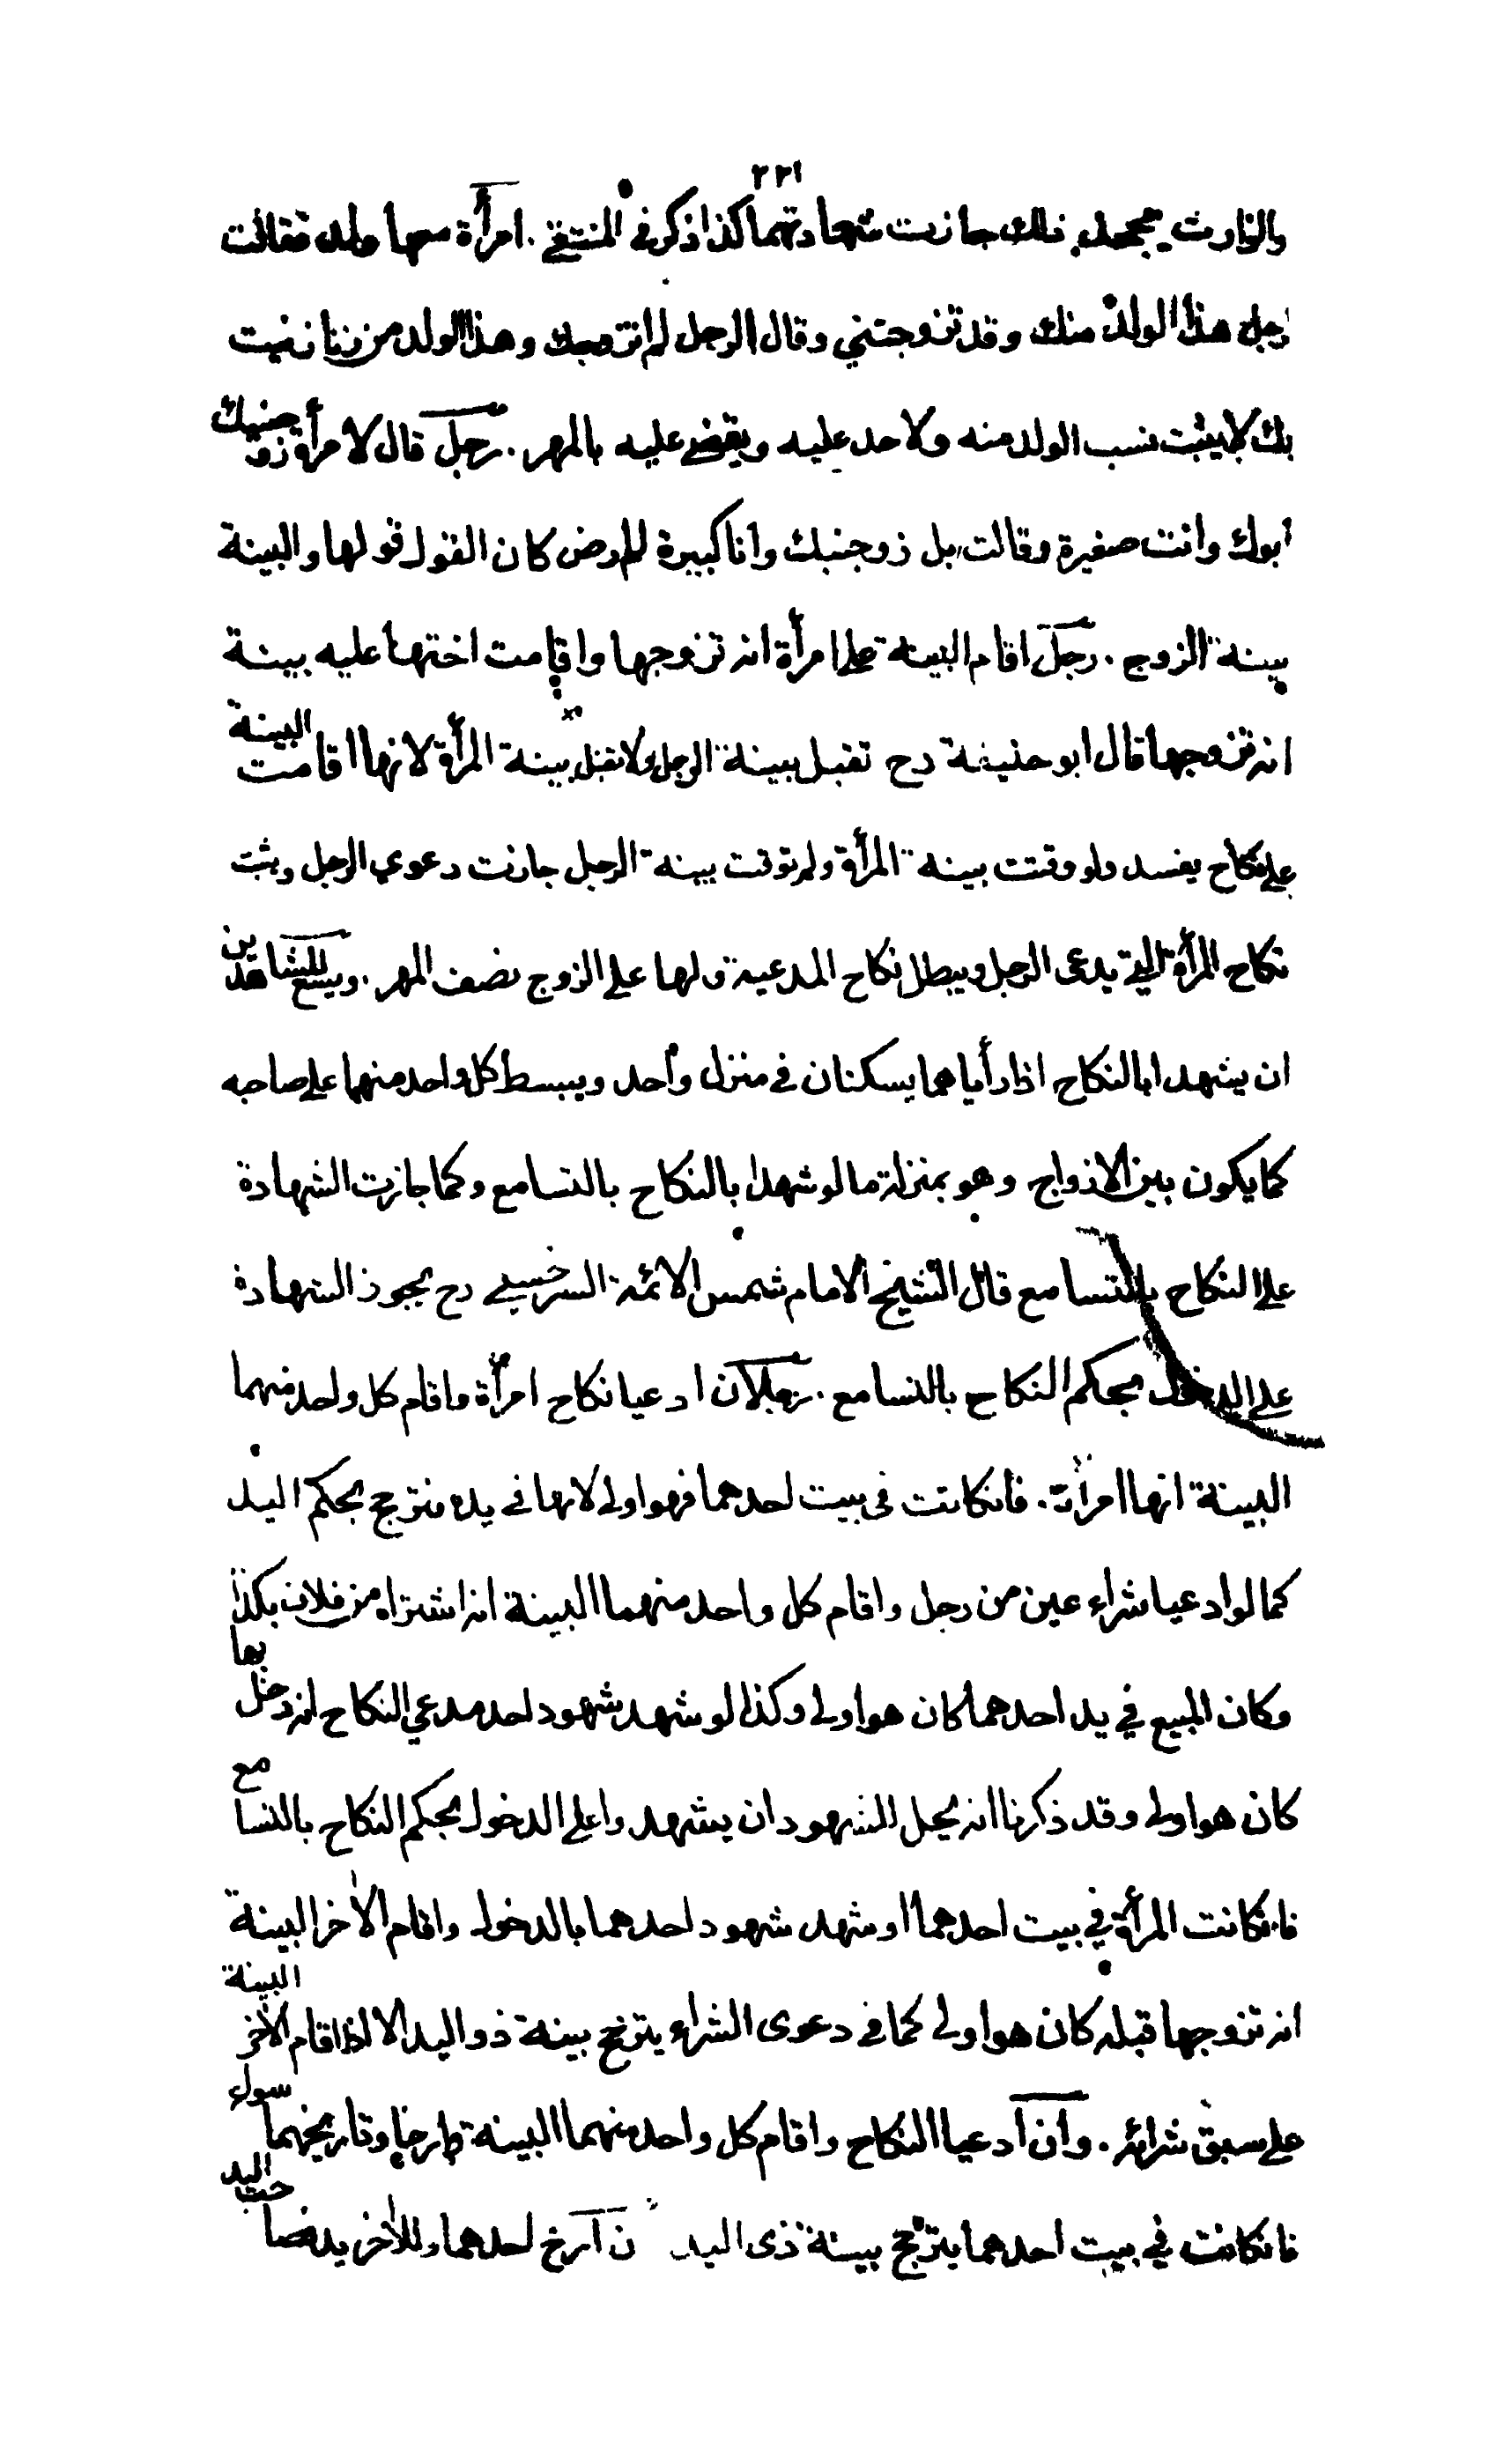 ٢٢١
والوارث يجحد ذلك جازت شهادتهما كذا ذكر في المنتقى . امرأة معها ولد فقالت
رجل هذا الولد منك وقد تزوجتني وقال الرجل لم اتزوجك وهذا الولد من زنا زنيت
بك لا يثبت نسب الولد منه ولا حد عليه ويقضى عليه بالمهر . رجل قال لامرأة زوجنيك
ابوك وانت صغيرة وقالت بل زوجنيك وانا كبيرة لم ارض كان القول قولها والبينة
بينة الزوج . رجل اقام البينة على امرأة انه تزوجها واقامت اختها عليه بينة
انه تزوجها قال ابو حنيفة رح تقبل بينة الرجل ولا تقبل بينة المرأة لانها اقامت البينة
على نكاح يفسد ولو وقتت بينة المرأة ولم توقت بينة الرجل جازت دعوي الرجل ويثبت
نكاح المرأة التي يدعى الرجل ويبطل نكاح المدعية ولها على الزوج نصف المهر . ويسع للشاهدين
ان يشهدا بالنكاح اذا رأياهما يسكنان في منزل واحد ويبسط كل واحد منهما على صاحبه
كما يكون بين الازواج وهو بمنزلة ما لو شهدا بالنكاح بالتسامع وكما جازت الشهادة
على النكاح بالتسامع قال الشيخ الامام شمس الائمة السرخسي رح يجوز الشهادة
على الدخول بحكم النكاح بالتسامع . رجلان ادعيا نكاح امرأة واقام كل واحد منهما
البينة انها امرأته . فان كانت في بيت احدهما فهو اولى لانها في يده فترجح بحكم اليد
كما لو ادعيا شراء عين من رجل واقام كل واحد منهما البينة انه اشتراه من فلان بكذا
وكان المبيع في يد احدهما كان هو اولى وكذا لو شهد شهود احد مدعي النكاح انه دخل بها
كان هو اولى وقد ذكرنا انه يحل للشهود ان يشهدوا على الدخول بحكم النكاح بالتسامع
فان كانت المرأة في بيت احدهما او شهد شهود احدهما بالدخول واقام الآخر البينة
انه تزوجها قبله كان هو اولى كما في دعوى الشراء يترجح بينة ذو اليد الا اذا اقام الآخر البينة
على سبق شرائه . وان ادعيا النكاح واقام كل واحد منهما البينة وارخا وتاريخهما سواء
فان كانت في بيت احدهما يترجح بينة ذى اليد ن ارخ احدهما وللآخر يد فصاحب اليد